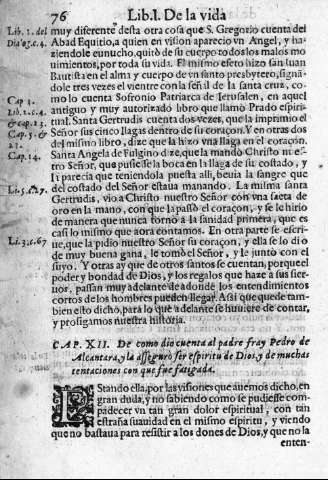 76 Lib. I. De la vida
Lib. 2. del muy diferente desta otra cosa que S. Gregorio cuenta del
Dia os. c. 4. Abad Equitio, a quien en vision apareciο vn Angel, y ha-
ziendole eunucho, quitò de su cuerpo todos los malos mo
uimientos, por toda su vida. El mismo efeto hizo san Iuan
Bautista en el alma y cuerpo de vn santo presbytero, signãn
dole tres vezes el vientre con la señal de la santa cruz, co-
Cap 3. mo lo cuenta Sofronio Patriarca de Ierusalen, en aquel
Lib. 2. c. 4. antiguo y muy autorizado libro que llamò Prado espiri-
& cap. 23. tual. Santa Gertrudis cuenta dos vezes, que la imprimio el
Cap. 5. & Señor sus cinco llagas dentro de su coraçon. Y en otras dos
23. del mismo libro, dize que la hizo vna llaga en el coraçon.
Cap. 14. Santa Angela de Fulgino dize, que la mandò Christo nuestro
Señor, que pusiesse la boca en la llaga de su costado, y
le parecia que teniendola puesta alli, beuia la sangre que
Li. 5. c. 27. del costado del Señor estaua manando. La misma santa
Gertrudis, vio a Christo nuestro Señor con vna saeta de
oro en la mano, con que la passò el coraçon, y se le hirio
de manera que nunca tornò a la sanidad primera, que es
casi lo mismo que aora contamos. En otra parte se escri-
Li. 3. c. 67 ue, que la pidio nuestro Señor su coraçon, y ella se lo dio
de muy buena gana, le tomò el Señor, y le juntò con el
suyo. Y otras ay que de otros santos se cuentan, porque el
poder y bondad de Dios, y los regalos que haze a sus sier-
uos, passan muy adelante de adonde los entendimientos
cortos de los hombres pueden llegar. Assi que quede tam-
bien esto dicho, para lo que adelante se huuiere de contar,
y prosigamos nuestra historia.
CAP. XII. De como dio cuenta al padre fray Pedro de
Alcantara, y la assegurò ser espiritu de Dios, y de muchas
tentaciones con que fue fatigada.
EStando ella, por las visiones que auemos dicho, en
gran duda, y no sabiendo como se pudiesse com-
padecer vn tan gran dolor espiritual, con tan
estraña suauidad en el mismo espiritu, y viendo
que no bastaua para resistir a los dones de Dios, y que no la
enten-